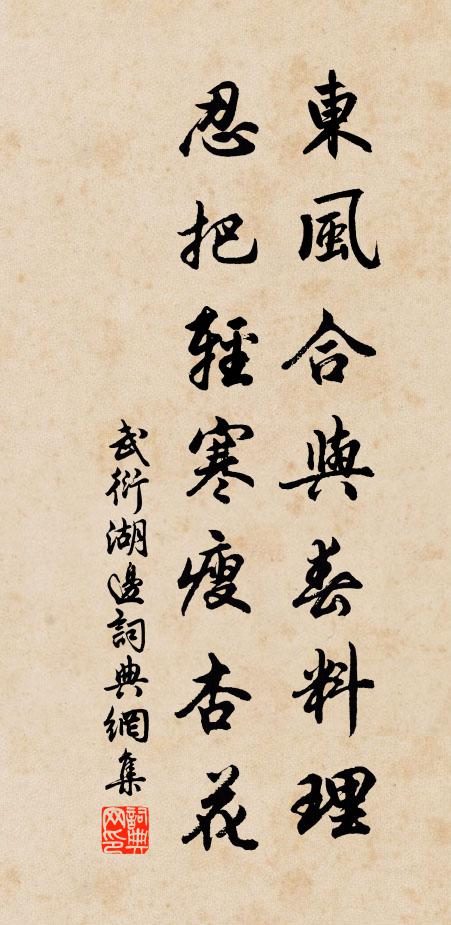 東風合與春料理
忍把輕寒瘦杏花
武衍湖邊詞典網集
詞典網印